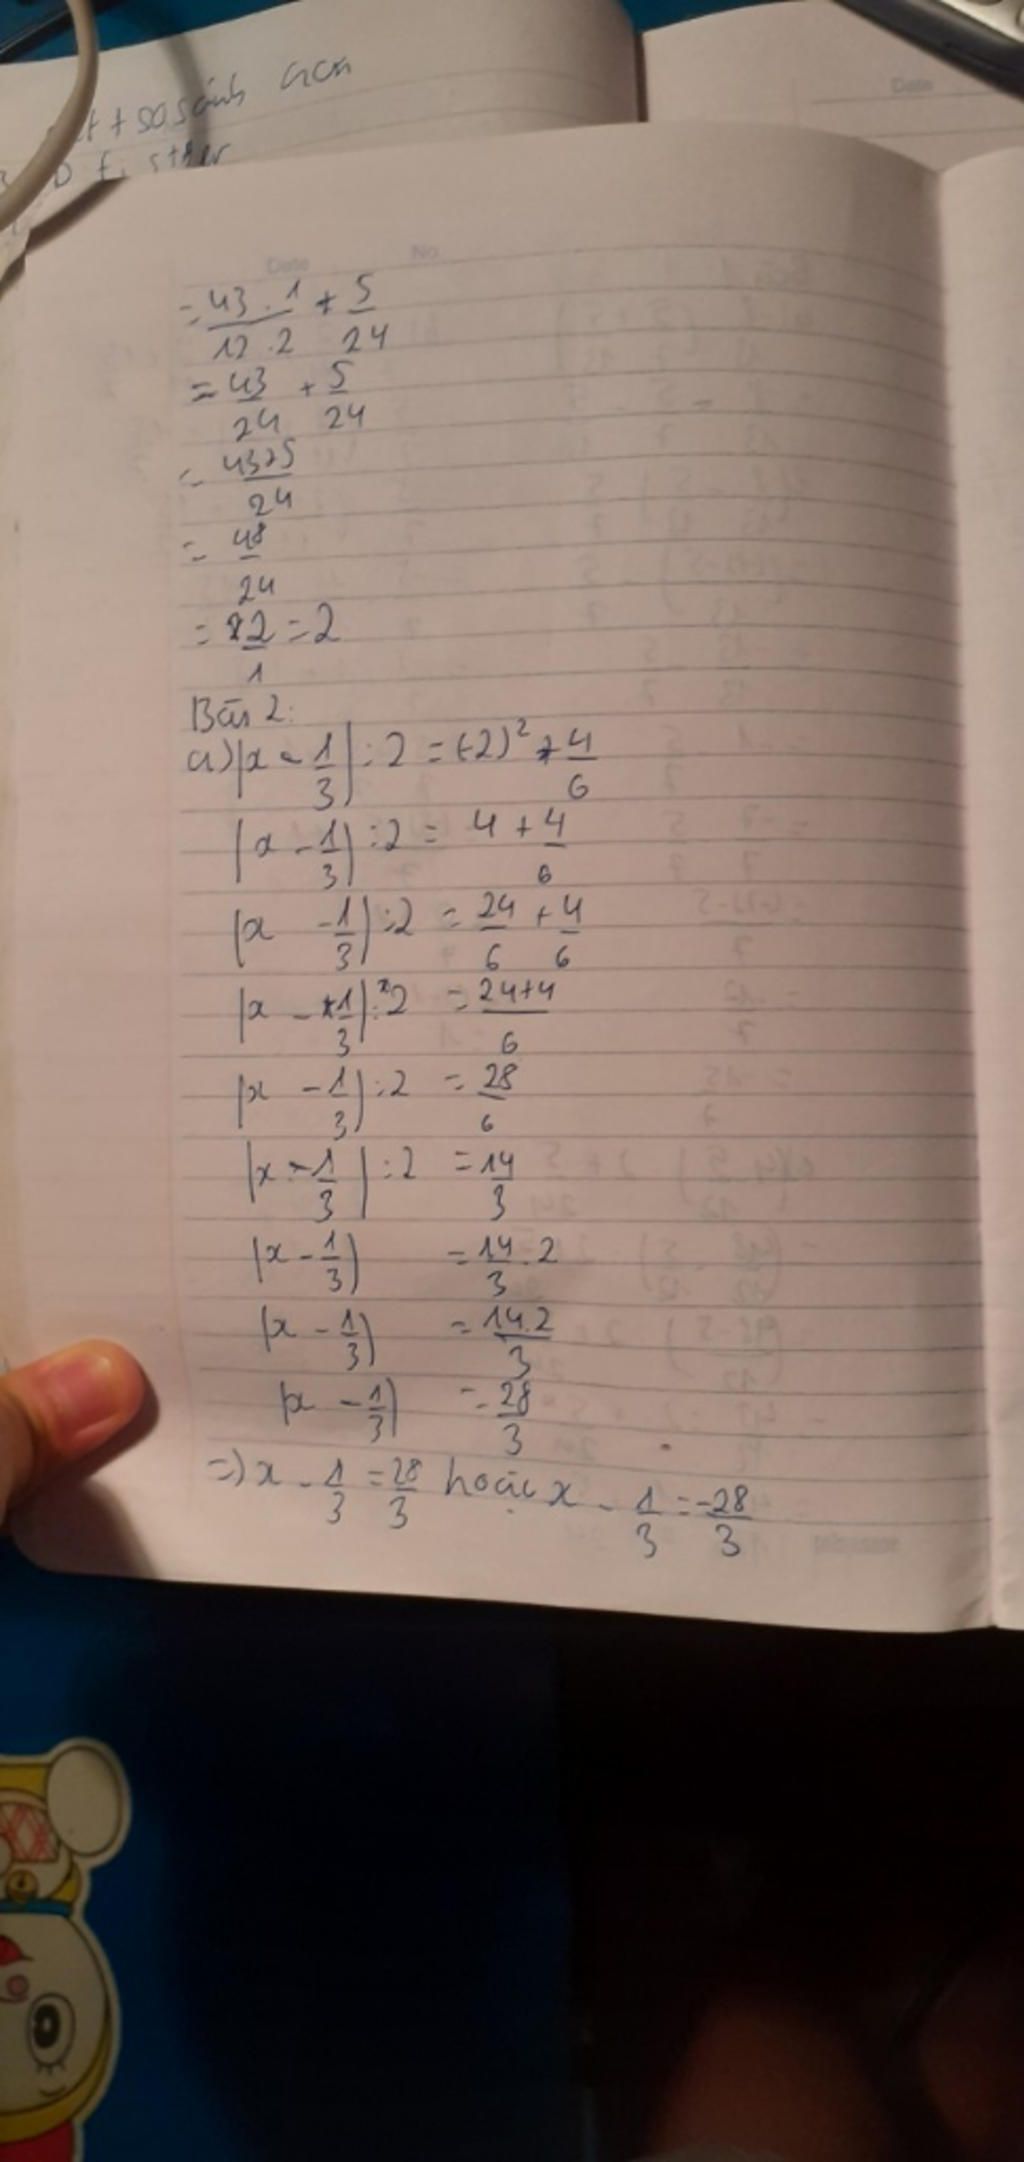 so sánh
Date
Date No.
= 43 . 1 / 12 . 2 + 5/24
= 43/24 + 5/24
= 43+5/24
= 48/24
= 2/1 = 2
Bài 2:
a) |x - 1/3| : 2 = (-2)² + 4/6
|x - 1/3| : 2 = 4 + 4/6
|x - 1/3| : 2 = 24/6 + 4/6
|x - 1/3| : 2 = 24+4/6
|x - 1/3| : 2 = 28/6
|x - 1/3| : 2 = 14/3
|x - 1/3| = 14/3 . 2
|x - 1/3| = 14.2/3
|x - 1/3| = 28/3
=> x - 1/3 = 28/3 hoặc x - 1/3 = -28/3